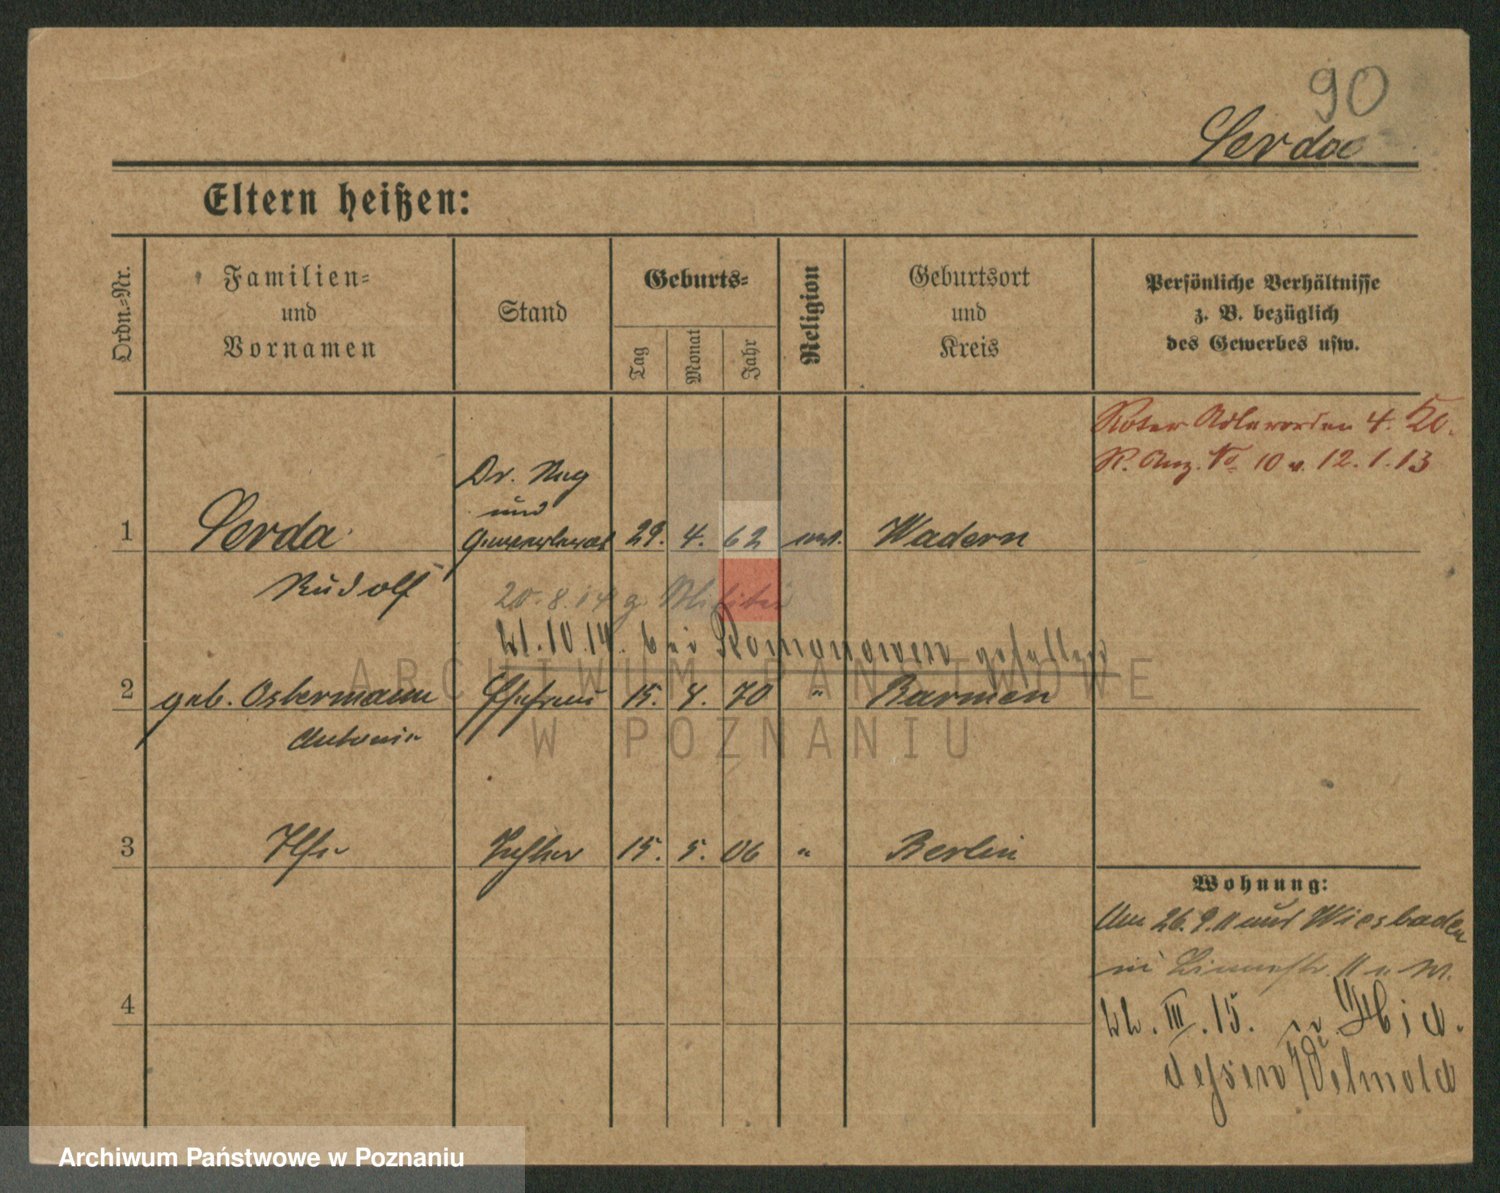 90
Serda
Eltern heißen:
Ordn.-Nr.
Familien-
und
Vornamen
Stand
Geburts-
Tag
Monat
Jahr
Religion
Geburtsort
und
Kreis
Persönliche Verhältnisse
z. B. bezüglich
des Gewerbes usw.
Roter Adlerorden 4. Kl.
R. Anz. No 10 v. 12.1.13
Dr. Reg
und
1
Serda
29. 4. 62
Wadern
Rudolf
20.8.14 z. Militär
21.10.14. bei gefallen
2
geb. Ostermann
Ehefrau
15. 4. 70
"
Barmen
Antonie
3
Ilse
Tochter
15. 5. 06
"
Berlin
Wohnung:
Am 26.9.11 aus Wiesbaden
in 11
4
22. III. 15.
Detmold
ARCHIWUM PAŃSTWOWE
W POZNANIU
Archiwum Państwowe w Poznaniu